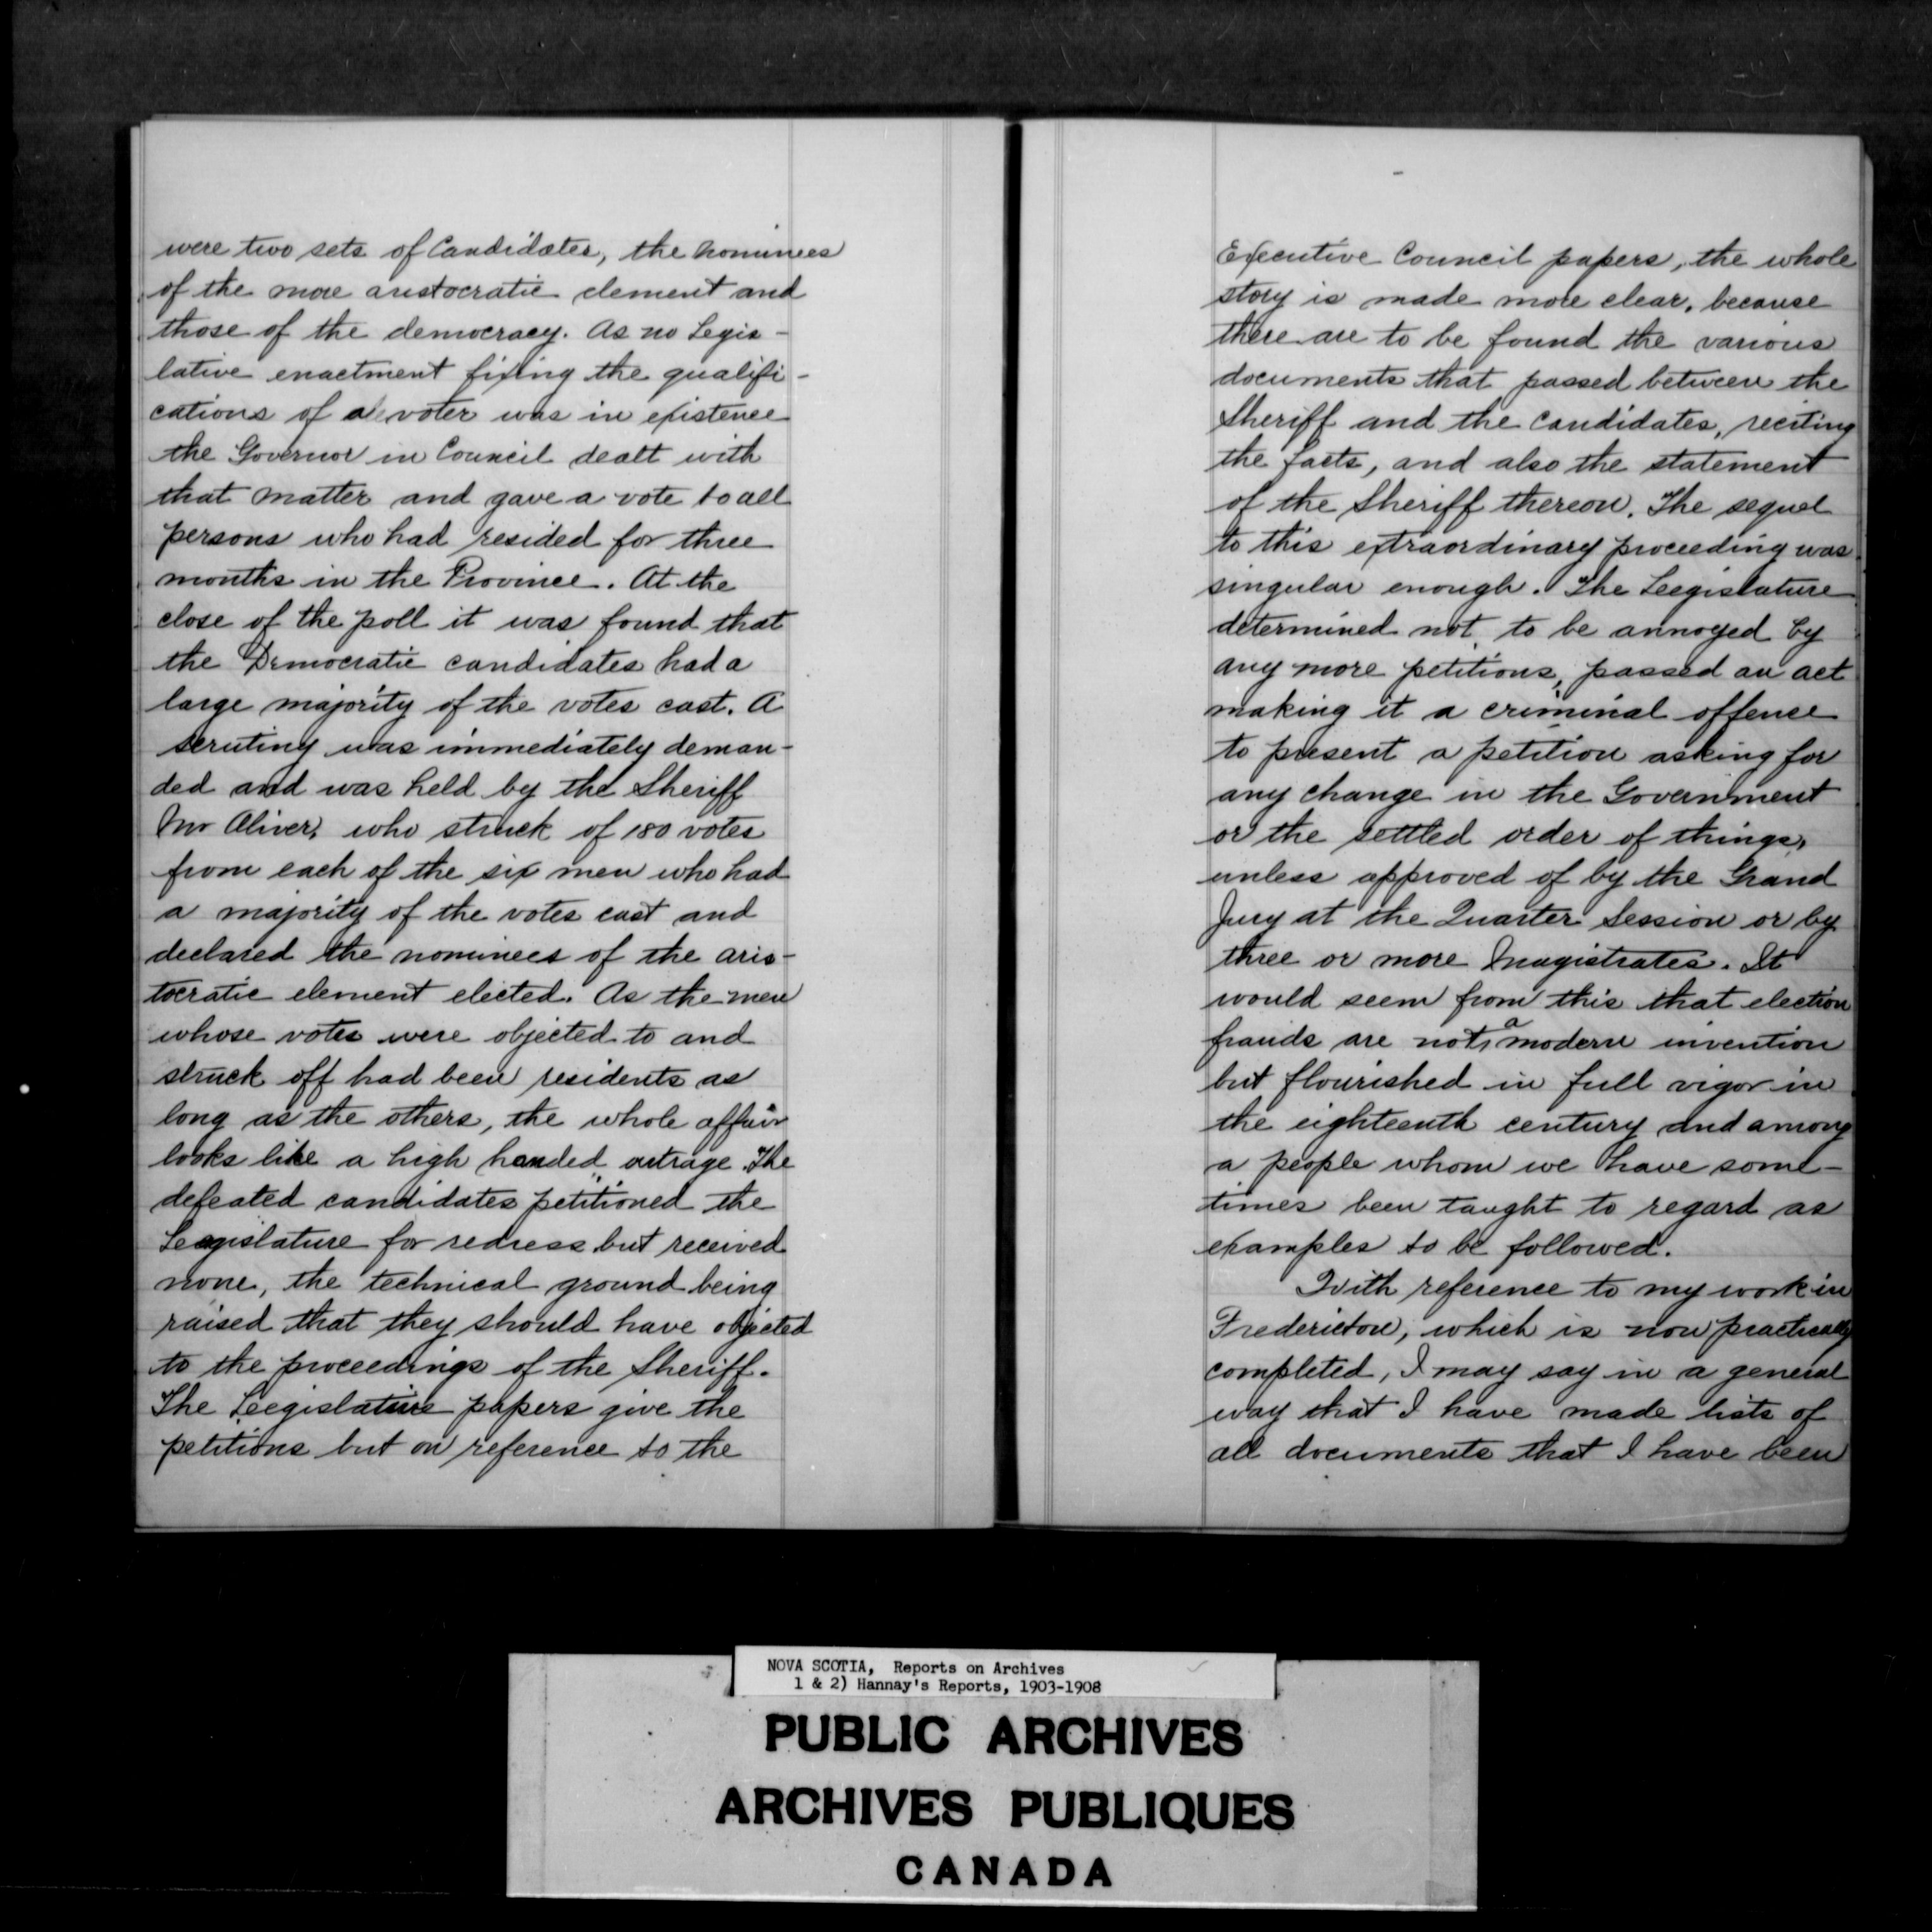 were two sets of Candidates, the nominees
of the more aristocratic element and
those of the democracy. As no Legis-
lative enactment fixing the qualifi-
cations of a voter was in existence
the Governor in Council dealt with
that matter and gave a vote to all
persons who had resided for three
months in the Province. At the
close of the poll it was found that
the Democratic candidates had a
large majority of the votes cast. A
scrutiny was immediately deman-
ded and was held by the Sheriff
Mr Oliver, who struck of 180 votes
from each of the six men who had
a majority of the votes cast and
declared the nominees of the aris-
tocratic element elected. As the men
whose votes were objected to and
struck off had been residents as
long as the others, the whole affair
looks like a high handed outrage. The
defeated candidates petitioned the
Legislature for redress but received
none, the technical ground being
raised that they should have objected
to the proceedings of the Sheriff.
The Legislature papers give the
petitions but on reference to the
Executive Council papers, the whole
story is made more clear, because
there are to be found the various
documents that passed between the
Sheriff and the Candidates, reciting
the facts, and also the statement
of the Sheriff thereon. The sequel
to this extraordinary proceeding was
singular enough. The Leegislature
determined not to be annoyed by
any more petitions, passed an act
making it a criminal offence
to present a petition asking for
any change in the Government
or the settled order of things,
unless approved of by the Grand
Jury at the Quarter Session or by
three or more Magistrates. It
would seem from this that election
frauds are not a modern invention
but flourished in full vigor in
the eighteenth century and among
a people whom we have some-
times been taught to regard as
examples to be followed.
With reference to my work in
Fredericton, which is now practically
completed, I may say in a general
way that I have made lists of
all documents that I have been
NOVA SCOTIA, Reports on Archives
1 & 2) Hannay's Reports, 1903-1908
PUBLIC ARCHIVES
ARCHIVES PUBLIQUES
CANADA